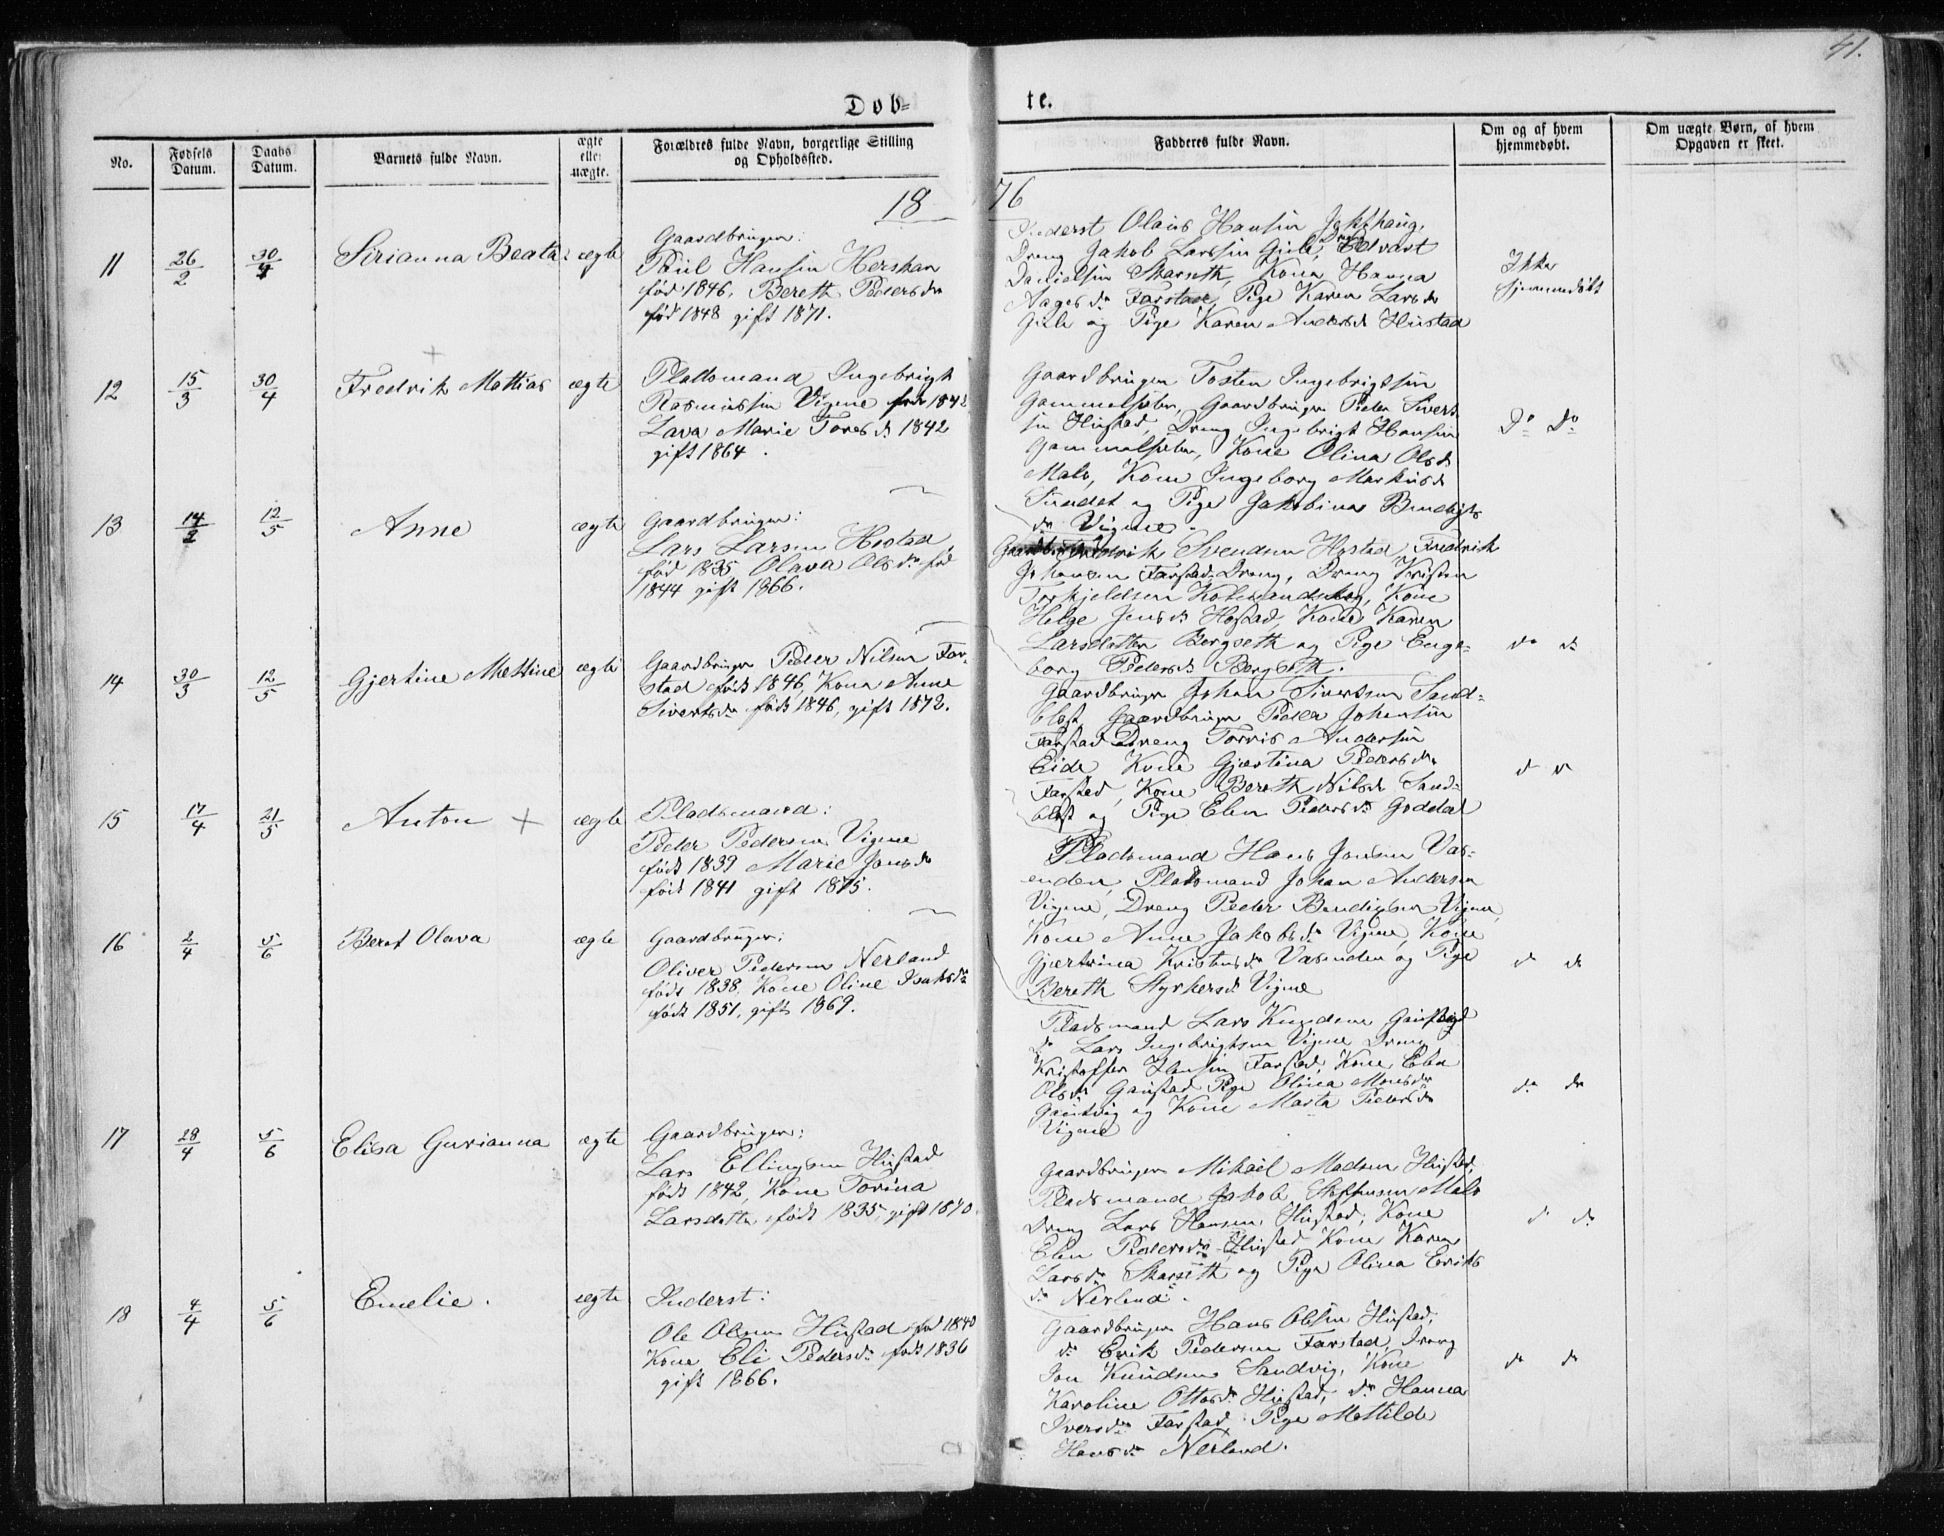 41.
Døb-
te.
No.
Fødsels Datum.
Daabs Datum.
Barnets fulde Navn.
ægte eller uægte.
Forældres fulde Navn, borgerlige Stilling og Opholdssted.
Fadderes fulde Navn.
Om og af hvem hjemmedøbt.
Om uægte Børn, af hvem Opgaven er skeet.
18
76
11
26/2
30/4
Sirianna Beata
ægte
Gaardbruger:
Poul Hansen
født 1846, Bereth Pedersdr
født 1848 gift 1871.
Inderst Olaus Hansen
Dreng Jakob Larssen Gule, Edvart
Danielsen Skarseth, Kone Hanna
Aagesdr Farstad, Pige Karen Larsdr
Gule og Pige Karen Andersdr Hustad
Ikke
hjemmedøbt
12
15/3
30/4
Fredrik Mattias
ægte
Pladsmand Ingebrigt
Rasmussen Vigme født 1842
Lava Marie Toresdr 1842
gift 1864.
Gaardbruger Tosten Ingebrigtsen
Gammelsæter, Gaardbruger Peder Sivert
sen Hustad, Dreng Ingebrigt Hansen
Gammelsæter, Kone Olina Olsdr
Malo, Kone Ingeborg Markusdr
Sundet og Pige Jakobina Bendigts
dr Vigme.
Do Do
13
14/2
12/5
Anne
ægte
Gaardbruger:
Lars Larsen Hostad
født 1835 Olava Olsdr født
1844 gift 1866.
Gaardbruger Fredrik Svendsen Hostad, Fredrik
Johansen Farstad Dreng, Dreng Kristen
Torkjeldsen, Kone
Helge Jensdr Hostad, Kone Karen
Larsdatter Bergseth og Pige Enge-
borg Pedersdr Bergseth.
do do
14
30/3
12/5
Gjertine Mettine
ægte
Gaardbruger Peder Nilsen Far-
stad født 1846, Kone Anne
Sivertsdr født 1846, gift 1872.
Gaardbruger Johan Sivertsen Sand-
blost, Gaardbruger Peder Johansen
Farstad Dreng Torris Andersen
Eide, Kone Gjertina Pedersdr
Farstad, Kone Bereth Nilsdr Sand-
blost og Pige Elen Pedersdr Goddal
do do
15
17/4
21/5
Anton +
ægte
Pladsmand:
Peder Pedersen Vigme
født 1839 Marie Jonsdr
født 1841 gift 1875.
Pladsmand Hans Jonsen Vas-
enden, Pladsmand Johan Andersen
Vigme, Dreng Peder Bendigtsen Vigme,
Kone Anne Jakobsdr Vigme, Kone
Gjertrina Kristensdr Vasenden og Pige
Bereth Styrkersdr Vigme
do do
16
2/4
5/6
Beret Olava
ægte
Gaardbruger:
Oliver Pedersen Nerland
født 1838, Kone Oline Isaksdr
født 1851, gift 1869.
Pladsmand Lars Knudsen
do Lars Ingebrigtsen Vigme Dreng
Kristoffer Hansen Farstad, Kone Elen
Olsdr Gaustad Pige Olina Monsdr
og Kone Marta Pedersdr
Vigme
do do
17
28/4
5/6
Elisa Gurianna
ægte
Gaardbruger:
Lars Ellingsen Hustad
født 1842, Kone Torina
Larsdatter født 1835, gift 1870.
Gaardbruger Mikael Madsen Hustad,
Pladsmand Jakob Steffensen Malo
Dreng Lars Hansen Hustad, Kone
Elen Pedersdr Hustad Kone Karen
Larsdr Skarseth og Pige Olina Eriks
dr Nerland.
do do
18
4/4
5/6
Emelie.
ægte
Inderst:
Ole Olsen Hustad født 1840
Kone Eli Pedersdr født 1836
gift 1866.
Gaardbruger Hans Olsen Hustad,
do Erik Pedersen Farstad, Dreng
Jon Knudsen Sandvig, Kone
Karoline Ottosdr Hustad, do Hanna
Iversdr Farstad, Pige Mattilde
Hansdr Nerland.
do do